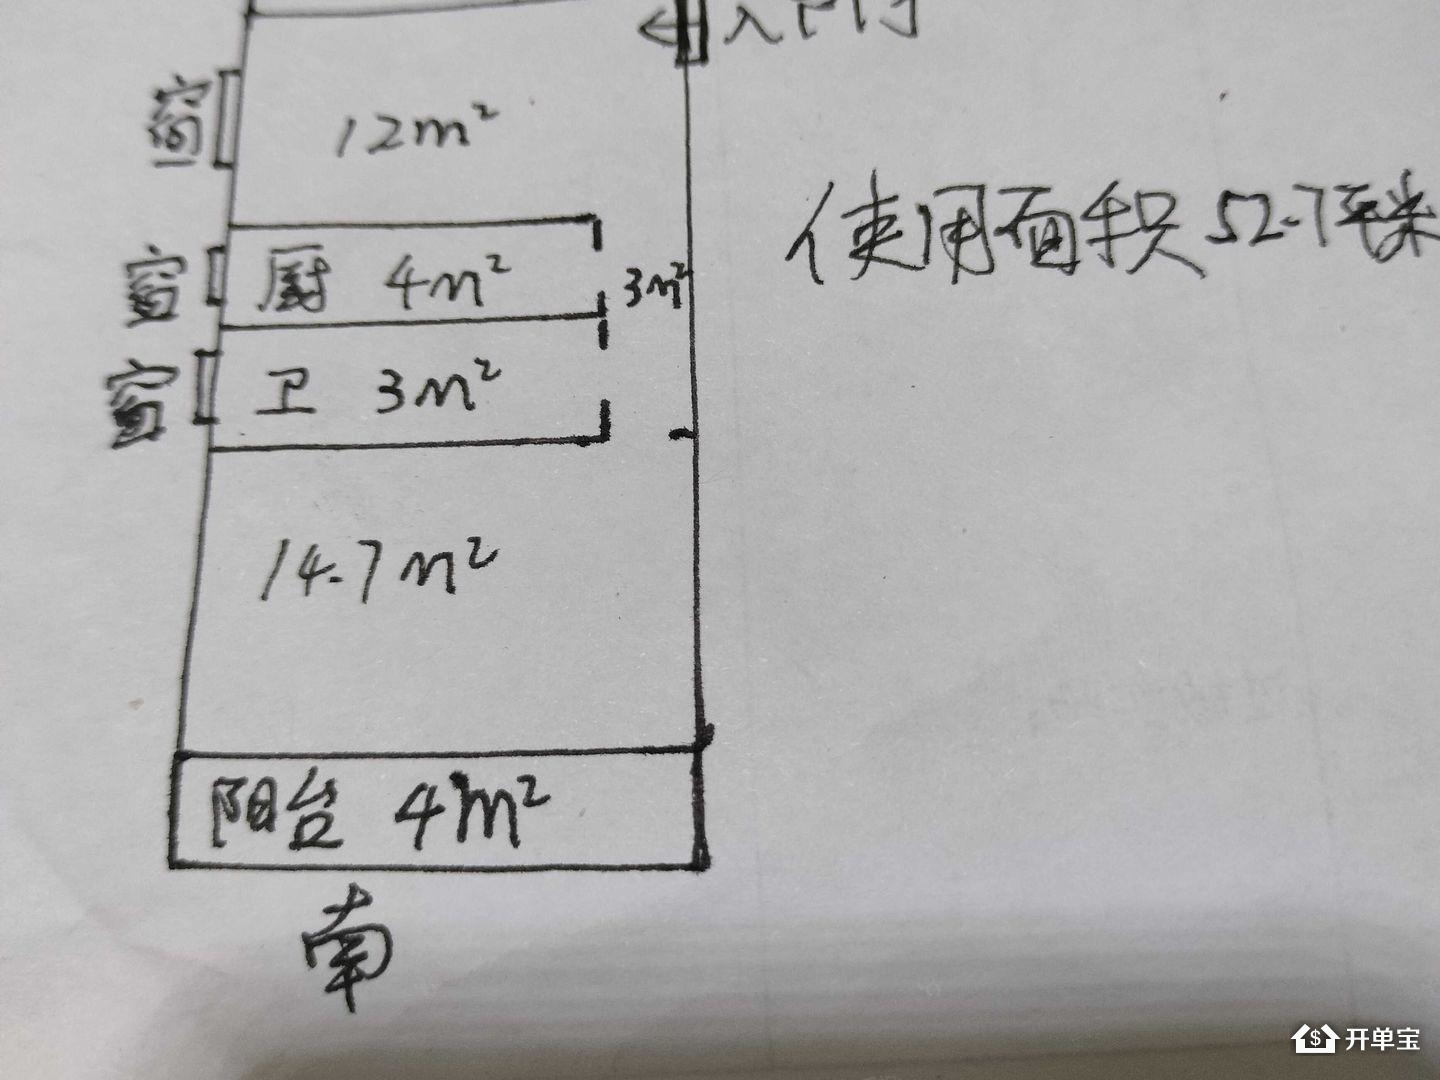 入户门
窗
12m²
使用面积 52.7平米
窗 厨 4m² 3m²
窗 卫 3m²
14.7m²
阳台 4m²
南
开单宝